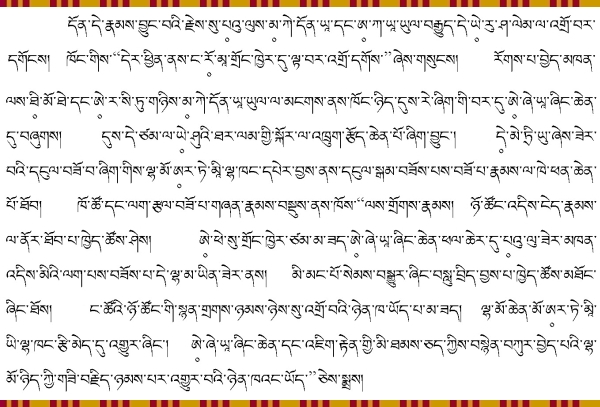 དོན་དེ་རྣམས་བྱུང་བའི་རྗེས་སུ་པཱུ་ལུས་མཱ་ཀེ་དོན་ཡཱ་དང་ཨཱ་ཀཱ་ཡཱ་ཡུལ་བརྒྱུད་དེ་ཡེ་རུ་ཤ་ལེམ་ལ་འགྲོ་བར་
དགོངས། ཁོང་གིས་“དེར་ཕྱིན་ནས་ང་རོ་མཱ་གྲོང་ཁྱེར་དུ་ལྟ་བར་འགྲོ་དགོས་”ཞེས་གསུངས། རོགས་པ་བྱེད་མཁན་
ལས་ཐི་མོ་ཐེ་དང་ཨེ་ར་སི་ཏུ་གཉིས་མཱ་ཀེ་དོན་ཡཱ་ཡུལ་ལ་མངགས་ནས་ཁོང་ཉིད་དུས་རེ་ཞིག་གི་བར་དུ་ཨེ་ཞེ་ཡཱ་ཞིང་ཆེན་
དུ་བཞུགས། དུས་དེ་ཙམ་ལ་ཡེ་ཤུའི་ཐར་ལམ་གྱི་སྐོར་ལ་འཁྲུག་རྩོད་ཆེན་པོ་ཞིག་བྱུང་། དེ་མེ་ཏྲི་ཡུ་ཞེས་ཟེར་
བའི་དངུལ་བཟོ་བ་ཞིག་གིས་ལྷ་མོ་ཨར་ཏེ་མཱི་ལྷ་ཁང་དཔེར་བྱས་ནས་དངུལ་སྒམ་བཟོས་པས་བཟོ་པ་རྣམས་ལ་ཁེ་ཕན་ཆེན་
པོ་ཐོབ། ཁོ་ཚོ་དང་ལག་རྩལ་བཟོ་པ་གཞན་རྣམས་བསྡུས་ནས་ཁོས་“ལས་གྲོགས་རྣམས། ཉོ་ཚོང་འདིས་ངེད་རྣམས་
ལ་ནོར་ཐོབ་པ་ཁྱེད་ཚོས་ཤེས། ཨེ་ཕེ་སུ་གྲོང་ཁྱེར་ཙམ་མ་ཟད་ཨེ་ཞེ་ཡཱ་ཞིང་ཆེན་ཕལ་ཆེར་དུ་པཱུ་ལུ་ཟེར་མཁན་
འདིས་མིའི་ལག་པས་བཟོས་པ་དེ་ལྷ་མ་ཡིན་ཟེར་ནས། མི་མང་པོ་སེམས་བསྒྱུར་ཞིང་བསླུ་བྲིད་བྱས་པ་ཁྱེད་ཚོས་མཐོང་
ཞིང་ཐོས། ང་ཚོའི་ཉོ་ཚོང་གི་སྙན་གྲགས་ཉམས་ཉེས་སུ་འགྲོ་བའི་ཉེན་ཁ་ཡོད་པ་མ་ཟད། ལྷ་མོ་ཆེན་མོ་ཨར་ཏེ་མཱི་
ཡི་ལྷ་ཁང་རྩི་མེད་དུ་འགྱུར་ཞིང་། ཨེ་ཞེ་ཡཱ་ཞིང་ཆེན་དང་འཇིག་རྟེན་གྱི་མི་ཐམས་ཅད་ཀྱིས་བསྙེན་བཀུར་བྱེད་པའི་ལྷ་
མོ་ཉིད་ཀྱི་གཟི་བརྗིད་ཉམས་པར་འགྱུར་བའི་ཉེན་ཁའང་ཡོད་”ཅེས་སྨྲས།